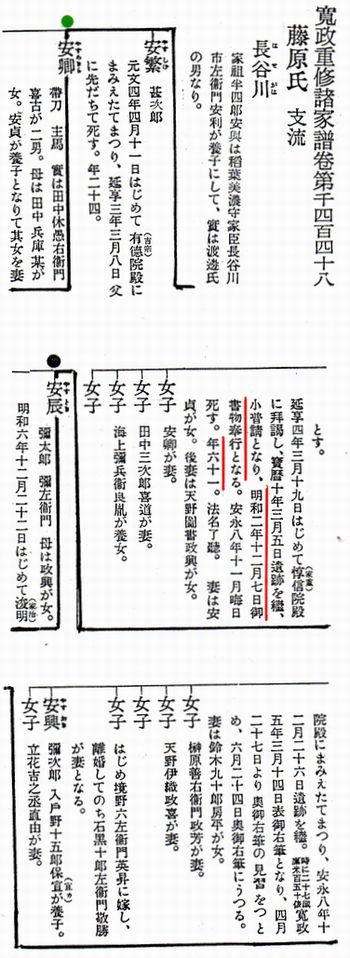 寬政重修諸家譜卷第千四百四十八
藤原氏 支流
長谷川
はせがは
家祖半四郎安與は稻葉美濃守家臣長谷川
市左衞門安利が養子にして、實は渡邊氏
の男なり。
安繁
やすしげ
甚次郎
元文四年四月十一日はじめて有德院殿に
(吉宗)
まみえたてまつり、延享三年三月八日父
に先だちて死す。年二十四。
安卿
帶刀 主馬 實は田中休愚右衞門
喜古が二男。母は田中兵庫某が
女。安貞が養子となりて其女を妻
とす。
延享四年三月十九日はじめて惇信院殿
(家重)
に拜謁し、寶曆十年三月五日遺跡を繼、
小普請となり、明和二年十二月七日御
書物奉行となる。安永八年十一月晦日
死す。年六十一。法名了聽。 妻は安
貞が女。後妻は天野圖書政興が女。
女子
安卿が妻。
女子
田中三次郎喜道が妻。
女子
海上彌兵衞良胤が養女。
女子
安辰
彌太郎 彌左衞門 母は政興が女。
明和六年十二月二十二日はじめて浚明
(家治)
院殿にまみえたてまつり、安永八年十
二月二十六日遺跡を繼。時に二十七歲廩米百五十俵寬政
五年三月十四日表御右筆となり、四月
二十七日より奧御右筆の見習をつと
め、六月二十四日奧御右筆にうつる。
妻は鈴木九十郎房平が女。
女子
榊原善右衞門政芳が妻。
女子
天野伊織政喜が妻。
女子
はじめ境野六左衞門英昇に嫁し、
離婚してのち石黑十郎左衞門敬勝
が妻となる。
安興
彌次郎 入戶野十五郎保宣が養子。
女子
立花吉之丞直由が妻。